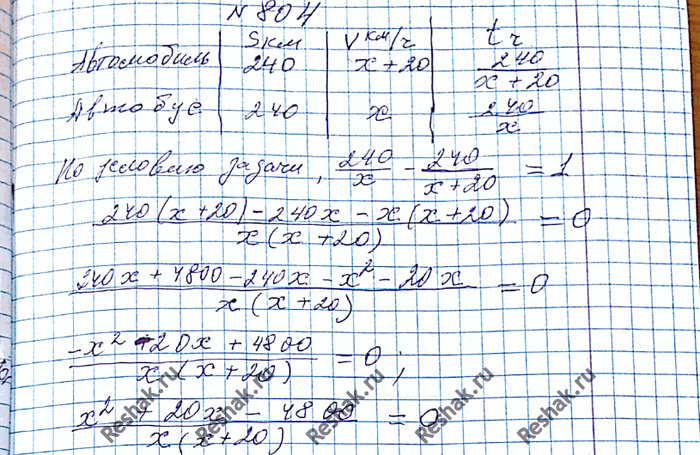 N 804
Sкм Vкм/ч tч
Автомобиль 240 x+20 240/(x+20)
Автобус 240 x 240/x
По условию задачи, 240/x - 240/(x+20) = 1
(240(x+20)-240x-x(x+20))/(x(x+20)) = 0
(240x+4800-240x-x²-20x)/(x(x+20)) = 0
(-x²-20x+4800)/(x(x+20)) = 0;
(x²+20x-4800)/(x(x+20)) = 0
Reshak.ru Reshak.ru Reshak.ru Reshak.ru Reshak.ru